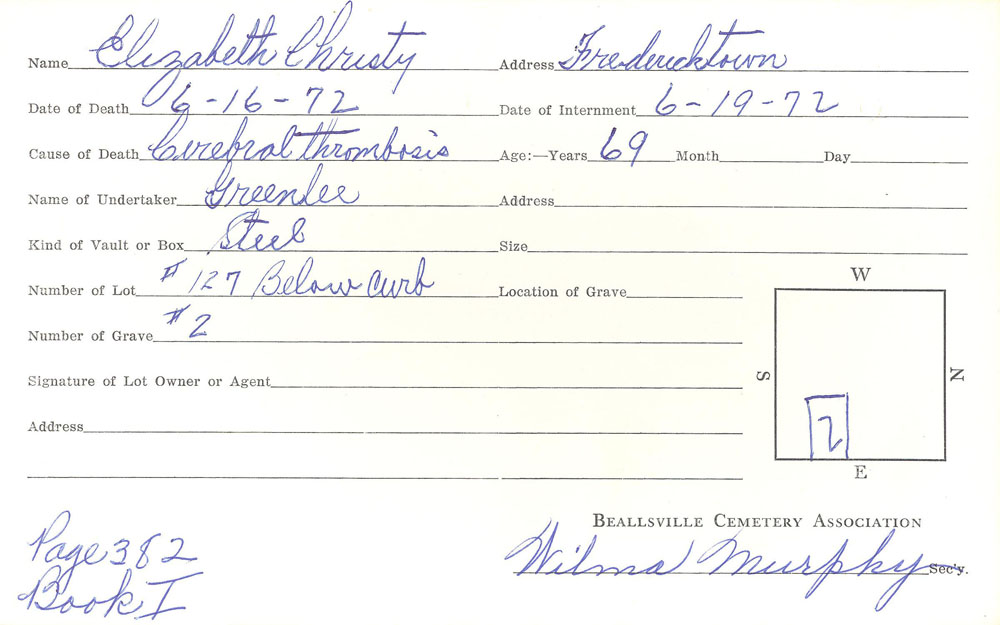 Name Elizabeth Christy Address Fredericktown
Date of Death 6-16-72 Date of Internment 6-19-72
Cause of Death Cerebral thrombosis Age:—Years 69 Month Day
Name of Undertaker Greenlee Address
Kind of Vault or Box Steel Size
Number of Lot #127 Below Curb Location of Grave
Number of Grave #2
W
S
N
Signature of Lot Owner or Agent
Address
2
E
BEALLSVILLE CEMETERY ASSOCIATION
Wilma Murphy Sec'y.
Page 382
Book I